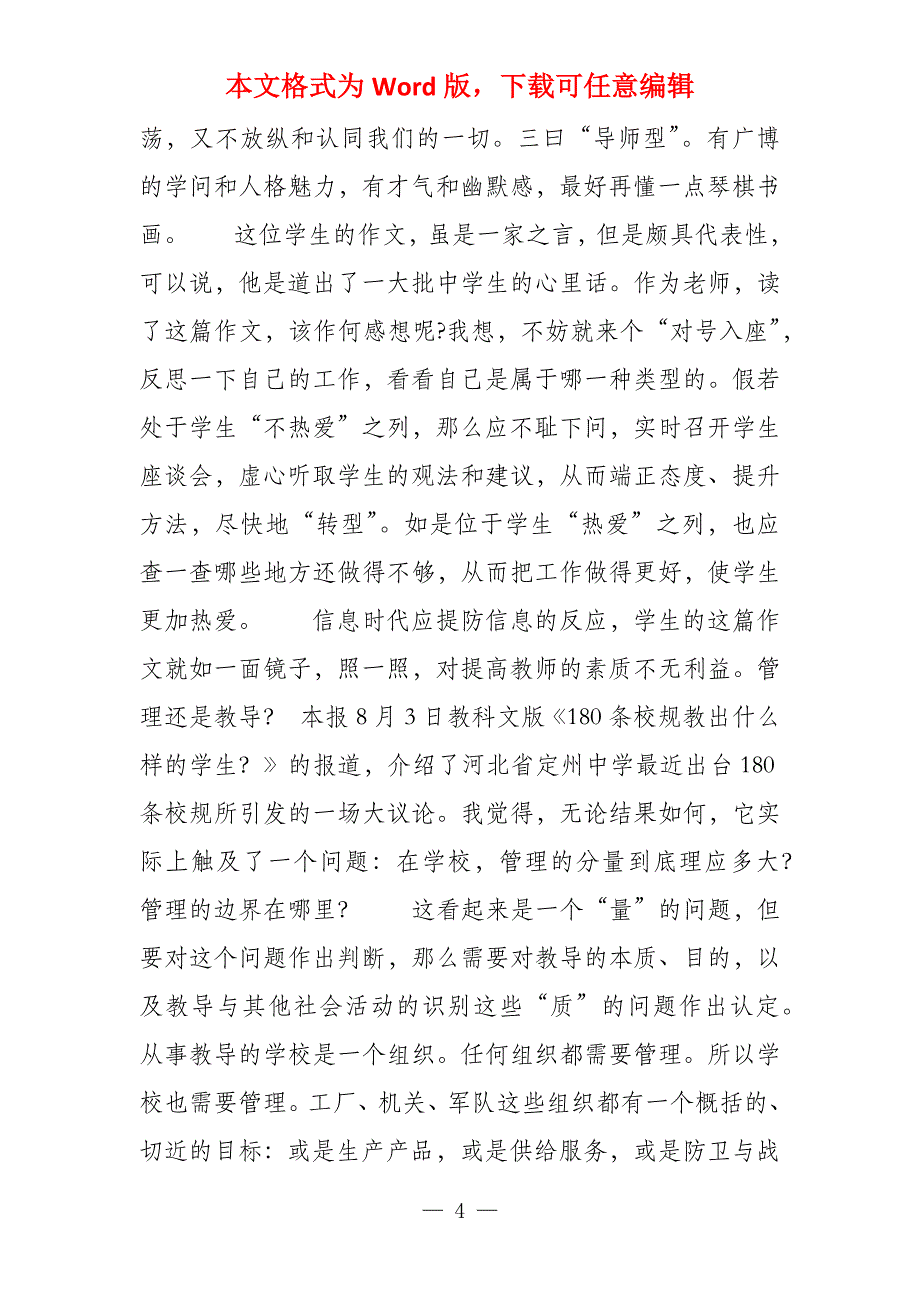 本文格式为 Word 版，下载可任意编辑
荡，又不放纵和认同我们的一切。三曰“导师型”。有广博
的学问和人格魅力，有才气和幽默感，最好再懂一点琴棋书
画。 这位学生的作文，虽是一家之言，但是颇具代表性，
可以说，他是道出了一大批中学生的心里话。作为老师，读
了这篇作文，该作何感想呢?我想，不妨就来个“对号入座”，
反思一下自己的工作，看看自己是属于哪一种类型的。假若
处于学生“不热爱”之列，那么应不耻下问，实时召开学生
座谈会，虚心听取学生的观法和建议，从而端正态度、提升
方法，尽快地“转型”。如是位于学生“热爱”之列，也应
查一查哪些地方还做得不够，从而把工作做得更好，使学生
更加热爱。 信息时代应提防信息的反应，学生的这篇作
文就如一面镜子，照一照，对提高教师的素质不无利益。管
理还是教导? 本报 8 月 3 日教科文版《180 条校规教出什么
样的学生? 》的报道，介绍了河北省定州中学最近出台 180
条校规所引发的一场大议论。我觉得，无论结果如何，它实
际上触及了一个问题：在学校，管理的分量到底理应多大?
管理的边界在哪里? 这看起来是一个“量”的问题，但
要对这个问题作出判断，那么需要对教导的本质、目的，以
及教导与其他社会活动的识别这些“质”的问题作出认定。
从事教导的学校是一个组织。任何组织都需要管理。所以学
校也需要管理。工厂、机关、军队这些组织都有一个概括的、
切近的目标：或是生产产品，或是供给服务，或是防卫与战
— 4 —